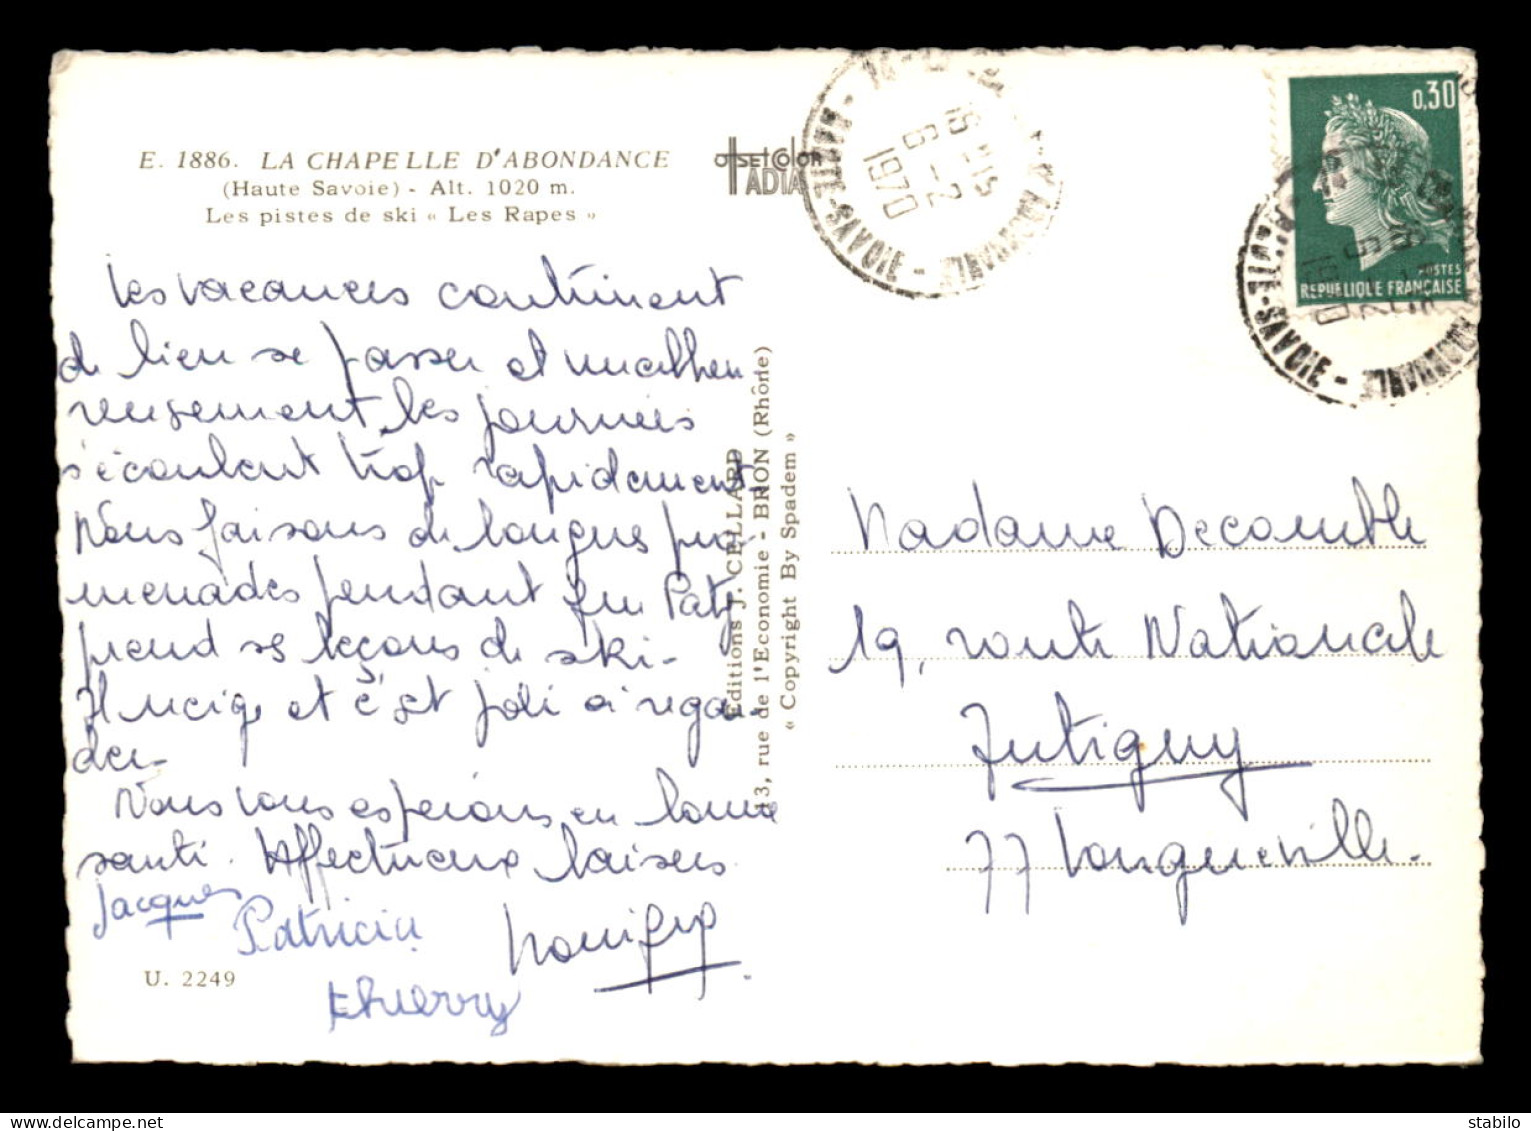 E. 1886. LA CHAPELLE D'ABONDANCE
(Haute Savoie) - Alt. 1020 m.
Les pistes de ski « Les Rapes »
offsetcolor
IADIA
Les vacances continuent
de bien se passer et malheu
reusement, les journées
s'écoulent trop rapidement.
Nous faisons de longues pro-
menades pendant que Paty
prend ses leçons de ski-
Il neige et c'est joli à regar-
der-
Nous vous espérons en bonne
santé. Affectueux baisers
Jacques
Patricia
thierry
U. 2249
Editions J. CELLARD
13, rue de l'Economie - BRON (Rhône)
« Copyright By Spadem »
15 H15
6 - 2
1970
HAUTE-SAVOIE
0,30
POSTES
REPUBLIQUE FRANÇAISE
1970
HAUTE-SAVOIE
Madame Decomble
19, route Nationale
Jutigny
77 Longueville.
delcampe.net
stabilo